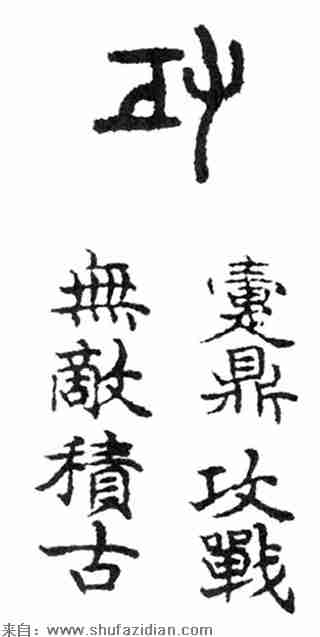 攻
疐鼎 攻戰
無敵積古
来自：www.shufazidian.com